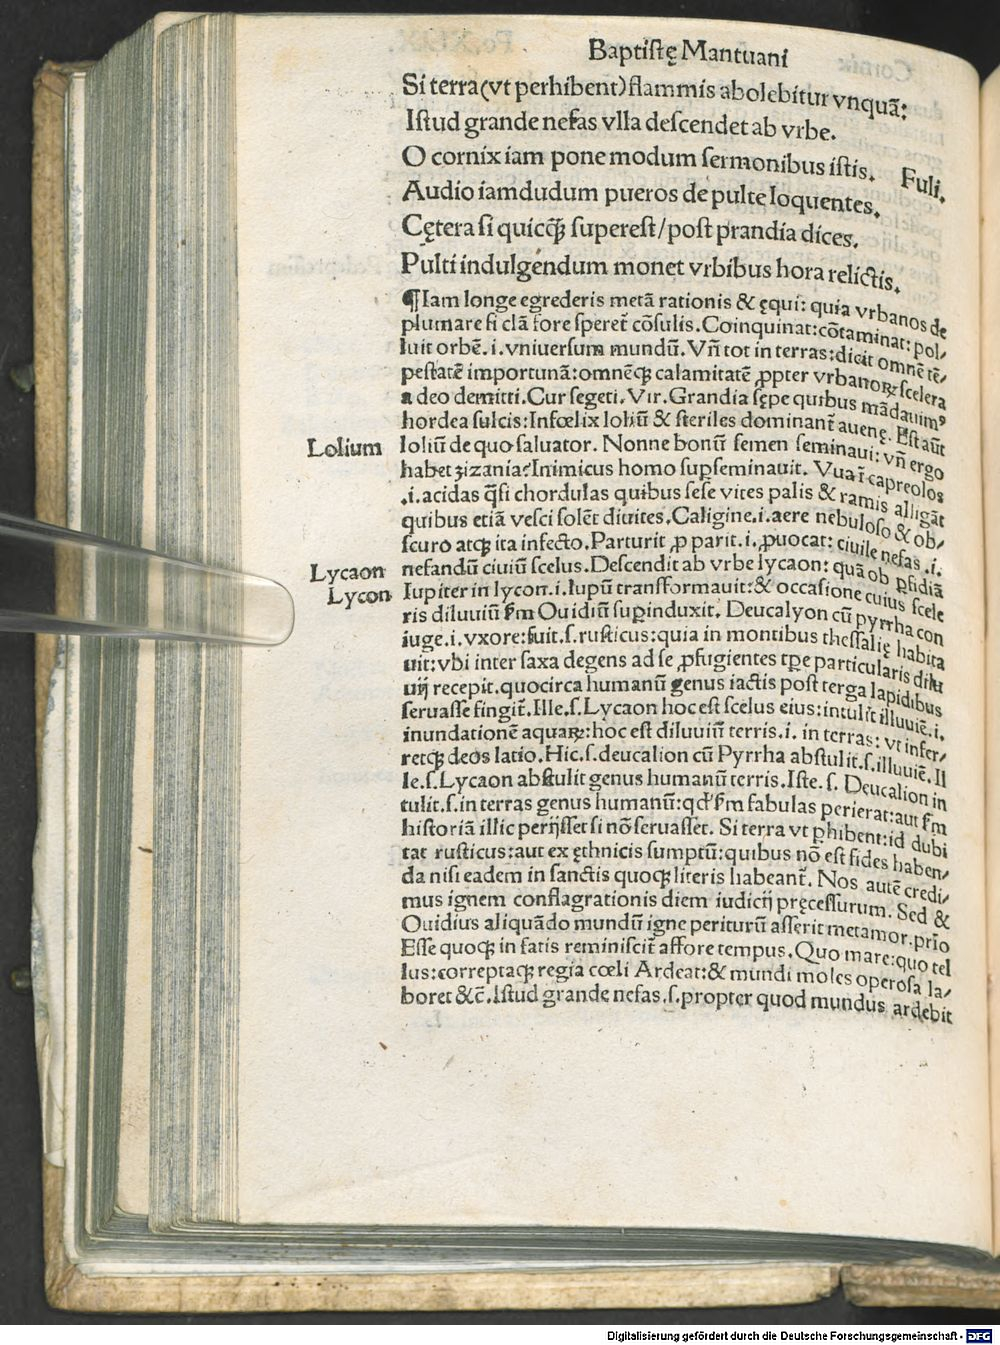 Baptistę Mantuani
Si terra (vt perhibent) flammis abolebitur vnquā:
Istud grande nefas vlla descendet ab vrbe.
O cornix iam pone modum sermonibus istis. Fuli.
Audio iamdudum pueros de pulte loquentes.
Cętera si quicq̃ superest/post prandia dices.
Pulti indulgendum monet vrbibus hora relictis.
¶Iam longe egrederis metā rationis & ęqui: quia vrbanos de
plumare si clā fore speret̄ cōsulis. Coinquinat: cōtaminat: pol/
luit orbē .i. vniuersum mundū. Vn̄ tot in terras: dicit omnē tē/
pestatē importunā: omnēq; calamitatē ꝓpter vrbanoꝝ scelera
a deo demitti. Cur segeti. Vir. Grandia sępe quibus mādauimꝰ
hordea sulcis: Infœlix loliū & steriles dominant̄ auenę. Est aūt
Lolium loliū de quo saluator. Nonne bonū semen seminaui: vn̄ ergo
habet zizania? Inimicus homo suꝑseminauit. Vua ī capreolos
.i. acidas q̃si chordulas quibus sese vites palis & ramis alligāt
quibus etiā vesci solēt diuites. Caligine .i. aere nebuloso & ob/
scuro atq; ita infecto. Parturit ꝓ parit .i. ꝓuocat: ciuile nefas .i.
Lycaon nefandū ciuiū scelus. Descendit ab vrbe lycaon: quā ob ꝑfidiā
Lycon Iupiter in lycon .i. lupū transformauit: & occasione cuius scele
ris diluuiū ẜm Ouidiū suꝑinduxit. Deucalyon cū pyrrha con
iuge .i. vxore: fuit .s. rusticus: quia in montibus thessalię habita
uit: vbi inter saxa degens ad se ꝓfugientes tꝑe particularis dilu
uij recepit. quocirca humanū genus iactis post terga lapidibus
seruasse fingit̄. Ille .s. Lycaon hoc est scelus eius: intulit illuuiē .i.
inundationē aquaꝝ: hoc est diluuiū terris .i. in terras: vt infer/
retq; deos latio. Hic .s. deucalion cū Pyrrha abstulit .s. illuuiē. Il
le .s. Lycaon abstulit genus humanū terris. Iste .s. Deucalion in
tulit .s. in terras genus humanū: qđ ẜm fabulas perierat: aut ẜm
historiā illic perijsset si nō seruasset. Si terra vt ꝑhibent: id dubi
tat rusticus: aut ex ęthnicis sumptū: quibus nō est fides haben/
da nisi eadem in sanctis quoq; literis habeant̄. Nos autē credi/
mus ignem conflagrationis diem iudicij pręcessurum. Sed &
Ouidius aliquādo mundū igne periturū asserit metamor. prīo
Esse quoq; in fatis reminiscit̄ affore tempus. Quo mare: quo tel
lus: correptaq; regia cœli Ardeat: & mundi moles operosa la/
boret &c̄. Istud grande nefas .s. propter quod mundus ardebit
Digitalisierung gefördert durch die Deutsche Forschungsgemeinschaft - DFG